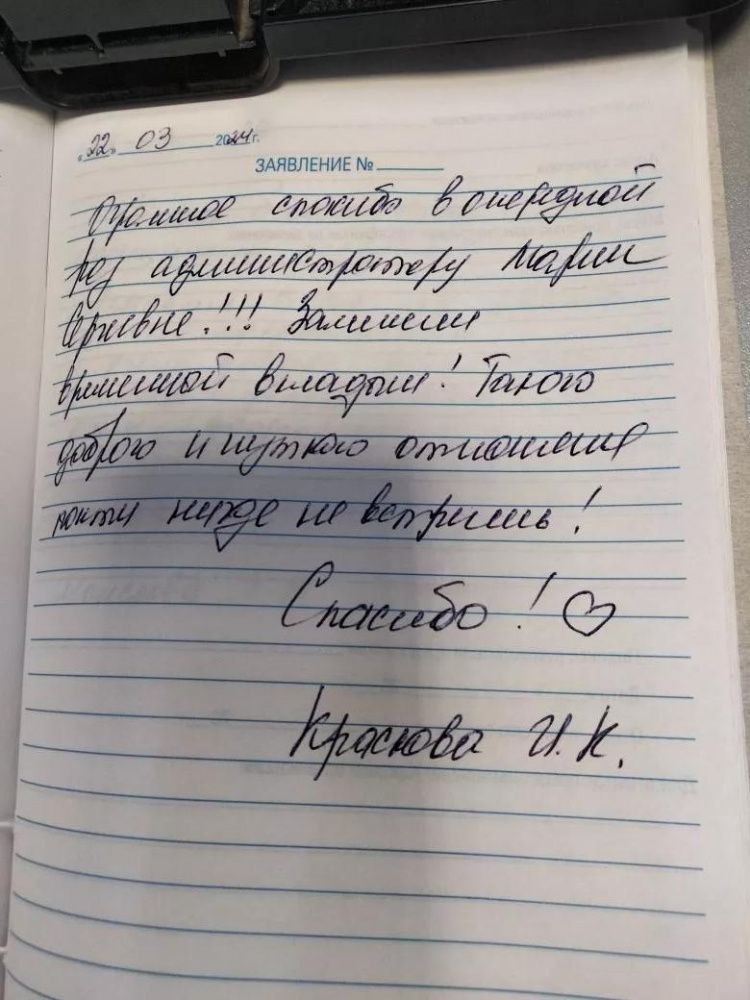 "22" 03 2024г.
ЗАЯВЛЕНИЕ №
Огромное спасибо в очередной
раз администратору Марии
Сергевне!!!
временной вкладыш! Такого
доброго и чуткого отношения
почти нигде не встретишь!
Спасибо! ♡
Краснова И.К.